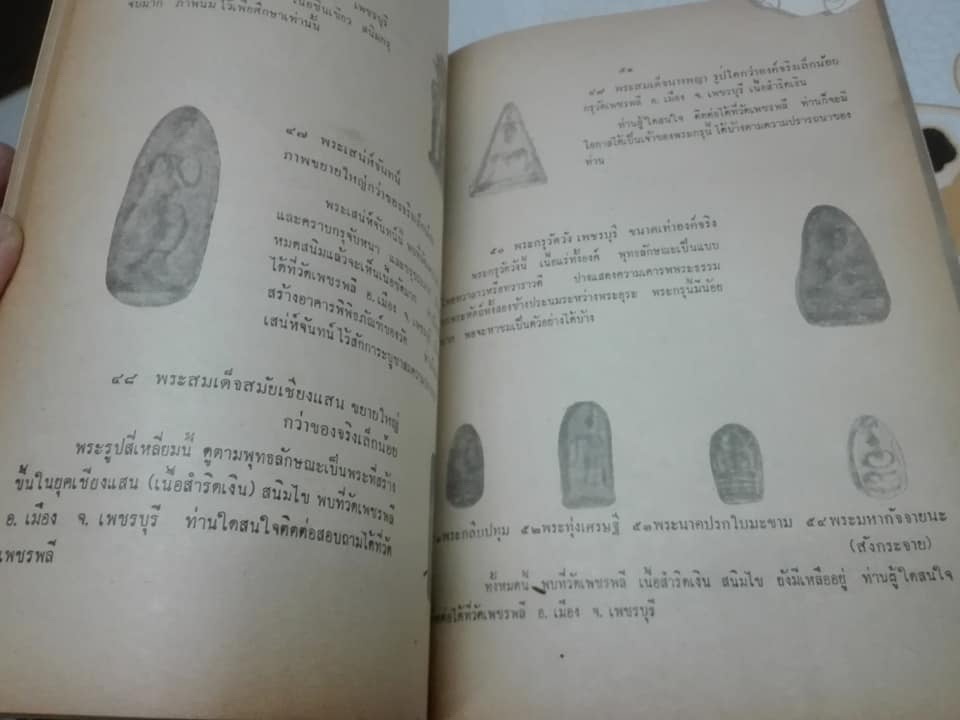 เพชรบุรี
เนื้อชินเขียว สนิมกรุ
จับมาก ภาพนี้มีไว้เพื่อศึกษาเท่านั้น
๔๗ พระเสน่ห์จันทน์
ภาพขยายใหญ่กว่าของจริงเล็กน้อย
พระเสน่ห์จันทน์นี้
และคราบกรุจับหนา
หมดสนิมแล้วจะเห็นเนื้อ
ได้ที่วัดเพชรพลี อ. เมือง จ. เพชรบุรี
สร้างอาคารพิพิธภัณฑ์ของวัด
เสน่ห์จันทน์ ไว้สักการะบูชา
๔๘ พระสมเด็จสมัยเชียงแสน ขยายใหญ่
กว่าของจริงเล็กน้อย
พระรูปสี่เหลี่ยมนี้ ดูตามพุทธลักษณะเป็นพระที่สร้าง
ขึ้นในยุคเชียงแสน (เนื้อสำริดเงิน) สนิมไข พบที่วัดเพชรพลี
อ. เมือง จ. เพชรบุรี ท่านใดสนใจติดต่อสอบถามได้ที่วัด
เพชรพลี
๕๑
๔๙ พระสมเด็จนางพญา รูปโตกว่าองค์จริงเล็กน้อย
กรุวัดเพชรพลี อ. เมือง จ. เพชรบุรี เนื้อสำริดเงิน
ท่านผู้ใดสนใจ ติดต่อได้ที่วัดเพชรพลี ท่านก็จะมี
โอกาสได้เป็นเจ้าของพระกรุนี้ ได้บ้างตามความปรารถนาของ
ท่าน
๕๐ พระกรุวัดวัง เพชรบุรี ขนาดเท่าองค์จริง
พระกรุวัดวังนี้ เนื้อแร่ทั้งองค์ พุทธลักษณะเป็นแบบ
หรือทวาราวดี ปางแสดงความเคารพพระธรรม
พระหัตถ์ทั้งสองข้างประนมระหว่างพระอุระ พระกรุนี้มีน้อย
มาก พอจะหาชมเป็นตัวอย่างได้บ้าง
พระกลีบปทุม ๕๒พระทุ่งเศรษฐี ๕๓พระนาคปรกใบมะขาม ๕๔ พระมหากัจจายนะ
(สังกระจาย)
ทั้งหมดนี้ พบที่วัดเพชรพลี เนื้อสำริดเงิน สนิมไข ยังมีเหลืออยู่ ท่านผู้ใดสนใจ
ติดต่อได้ที่วัดเพชรพลี อ. เมือง จ. เพชรบุรี